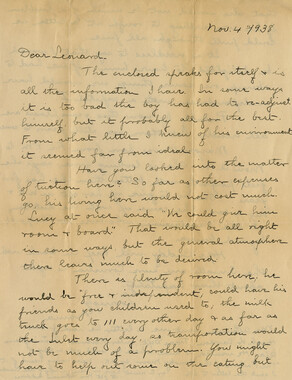 Nov. 4 1938
Dear Leonard.
The enclosed speaks for itself & is
all the information I have. In some ways
it is too bad the boy has had to re-adjust
himself but it probably all for the best.
From what little I knew of his environment
it seemed far from ideal.
Have you looked into the matter
of tuition here? So far as other expenses
go, his living here would not cost much.
Lucy at once said "We could give him
room & board" That would be all right
in some ways but the general atmosphere
there leaves much to be desired.
There is plenty of room here, he
would be free & independent, could have his
friends as you children used to, the milk
truck goes to 111 every other day & as far as
the every day, so transportation would
not be much of a problem. You might
have to help out some on the eating but